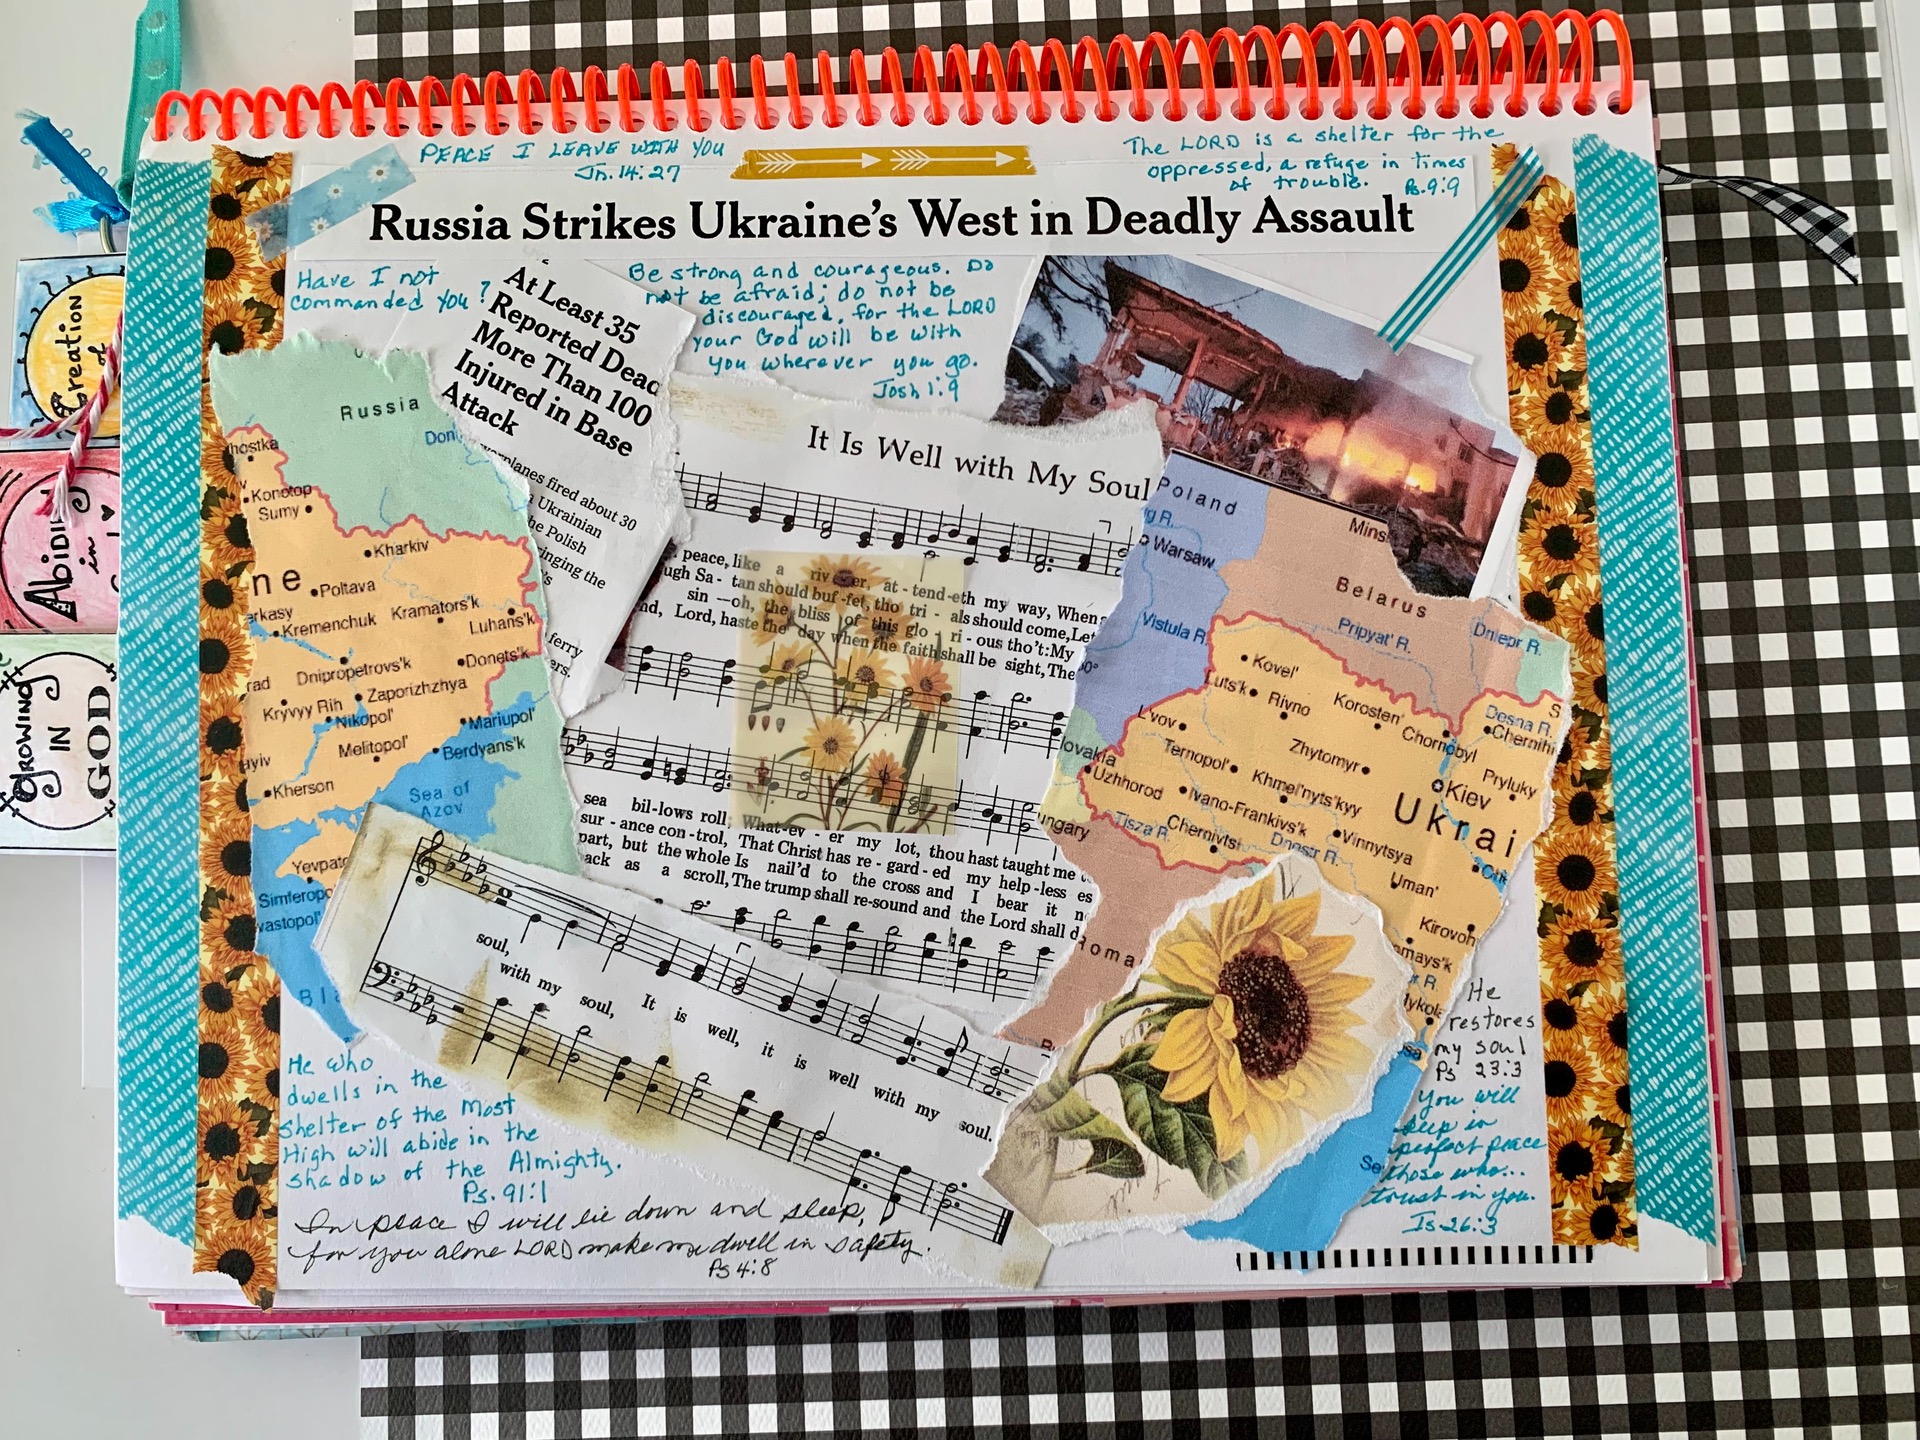 PEACE I LEAVE WITH YOU
Jn. 14:27
The LORD is a shelter for the
oppressed, a refuge in times
of trouble. Ps. 9:9
Russia Strikes Ukraine's West in Deadly Assault
Have I not
commanded you?
At Least 35
Reported Dead
More Than 100
Injured in Base
Attack
planes fired about 30
Ukrainian
the Polish
inging the
ferry
Be strong and courageous. Do
not be afraid; do not be
discouraged, for the LORD
your God will be with
you wherever you go.
Josh 1:9
It Is Well with My Soul
peace, like a riv - er, at - tend-eth my way, When
ugh Sa - tan should buf - fet, tho' tri - als should come, Let
sin —oh, the bliss of this glo - ri - ous tho't: My
nd, Lord, haste the day when the faith shall be sight, The
sea bil-lows roll; What-ev - er my lot, thou hast taught me
sur - ance con-trol, That Christ has re - gard - ed my help-less es
part, but the whole Is nail'd to the cross and I bear it n
ack as a scroll, The trump shall re-sound and the Lord shall d
soul,
with my soul, It is well, it is well with my soul.
Russia
Don
hostka
Konotop
Sumy
Kharkiv
ne
Poltava
erkasy
Kremenchuk
Kramators'k
Luhans'k
Dnipropetrovs'k
Donets'k
rad
Zaporizhzhya
Kryvyy Rih
Nikopol'
Mariupol'
Melitopol'
Berdyans'k
Kherson
Sea of
Azov
Yevpato
Simferopo
vastopol'
Bla
Poland
Warsaw
Vistula R.
Mins
Belarus
Pripyat' R.
Dniepr R.
Kovel'
Luts'k
Rivno
Korosten'
Desna R.
Chornobyl
Chernihi
L'vov
Ternopol'
Zhytomyr
Kiev
Pryluky
Khmel'nyts'kyy
Ukrai
lovakia
Uzhhorod
Ivano-Frankivs'k
Vinnytsya
ungary
Tisza R.
Chernivtsi
Dnestr R.
Uman'
Kirovoh
Roma
omays'k
Mykola
He
restores
my soul
Ps 23:3
You will
keep in
perfect peace
those who...
trust in you.
Is 26:3
He who
dwells in the
shelter of the Most
High will abide in the
shadow of the Almighty.
Ps. 91:1
In peace I will lie down and sleep,
for you alone LORD make me dwell in safety.
Ps 4:8
Creation
of
Abiding
in
Growing
IN
GOD